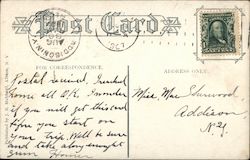 Post Card
ADDISON N.Y.
AUG
FOR CORRESPONDENCE.
ADDRESS ONLY.
Postal received. Reached
home all O.K. I wonder
if you will get this card
before you start on
your trip. Well be sure
and take along enough
Homer
Miss Mae
Addison
N.Y.